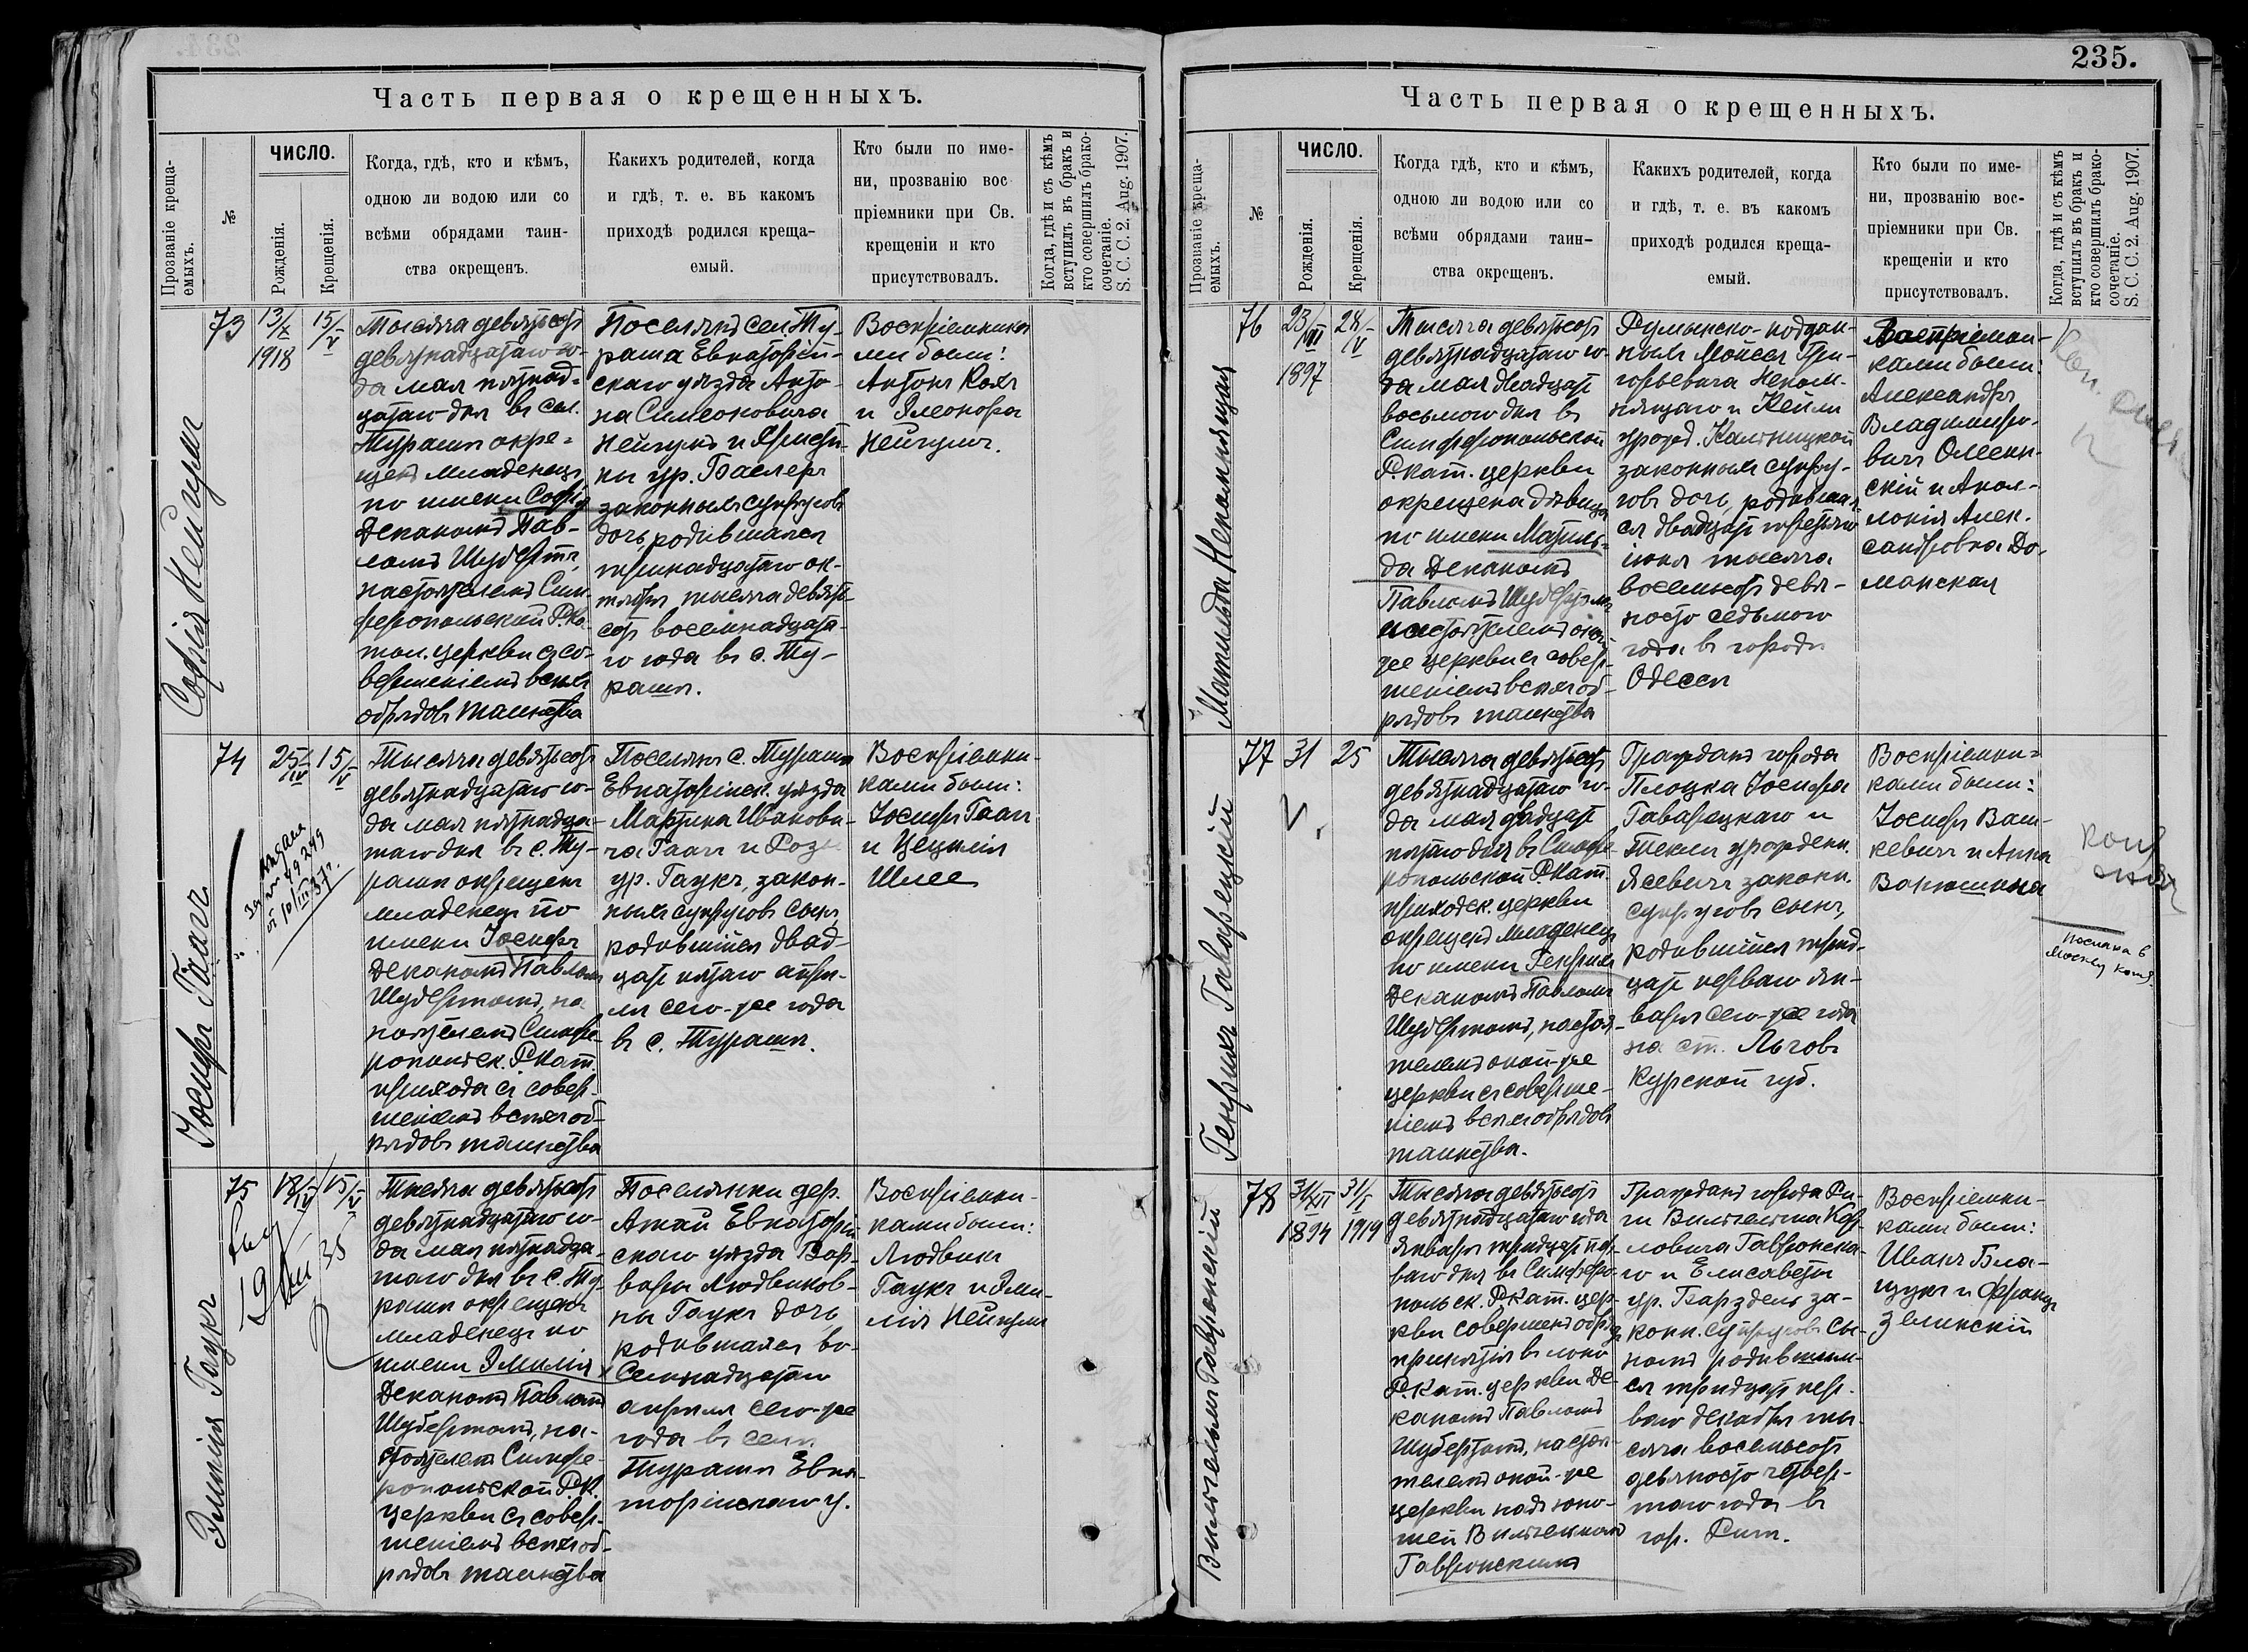 Часть первая о крещенныхъ.
Прозваніе креща-
емыхъ.
№
ЧИСЛО.
Рожденія.
Крещенія.
Когда, гдѣ, кто и кѣмъ,
одною ли водою или со
всѣми обрядами таин-
ства окрещенъ.
Какихъ родителей, когда
и гдѣ, т. е. въ какомъ
приходѣ родился креща-
емый.
Кто были по име-
ни, прозванію вос
пріемники при Св.
крещеніи и кто
присутствовалъ.
Когда, гдѣ и съ кѣмъ
вступилъ въ бракъ и
кто совершилъ брако-
сочетаніе.
S. C. C. 2. Aug. 1907.
Софія Нейгумъ
73
13/X
1918
15/V
Тысяча девятьсотъ
девятнадцатаго го-
да мая пятнад-
цатаго дня въ сел.
Турашѣ окре-
щенъ младенецъ
по имени Софія
Деканомъ Пав-
ломъ Шубертомъ,
настоятелемъ Сим-
феропольской Р.Ка-
тол. церкви съ со-
вершеніемъ всѣхъ
обрядовъ таинства
Поселянъ села Ту-
раша Евпаторій-
скаго уѣзда Анто-
на Симеоновича
Нейгумъ и Христи-
ны ур. Баслеръ
законныхъ супруговъ
дочь, родившаяся
тринадцатаго ок-
тября тысяча девять-
сотъ восемнадцата-
го года въ с. Ту-
рашѣ.
Воспріемника
ми были:
Антонъ Кохъ
и Элеонора
Нейгумъ.
Іосифъ Гаагъ
74
25/IV
15/V
Тысяча девятьсотъ
девятнадцатаго го-
да мая пятнадца-
таго дня въ с. Ту-
рашѣ окрещенъ
младенецъ по
имени Іосифъ
Деканомъ Павломъ
Шубертомъ, на
стоятелемъ Симфе-
ропольск. Р.Кат.
прихода съ совер-
шеніемъ всѣхъ об-
рядовъ таинства
Поселянъ с. Турашъ
Евпаторійск. уѣзда
Мартина Иванови-
ча Гаагъ и Розы
ур. Гаукъ, закон-
ныхъ супруговъ сынъ,
родившійся двад-
цать пятаго апрѣ-
ля сего-же года
въ с. Турашѣ.
Воспріемни-
ками были:
Іосифъ Гаагъ
и Цецилія
Шлее
Эмилія Гаукъ
75
18/IV
15/V
Тысяча девятьсотъ
девятнадцатаго го-
да мая пятнадца-
таго дня въ с. Ту-
рашѣ окрещенъ
младенецъ по
имени Эмилія
Деканомъ Павломъ
Шубертомъ, на-
стоятелемъ Симфе-
ропольской Р.К.
церкви съ совер-
шеніемъ всѣхъ об-
рядовъ таинства
Поселянки дер.
Атай Евпаторій
скаго уѣзда Вар-
вары Людвиков-
ны Гаукъ дочь,
родившаяся во-
семнадцатаго
апрѣля сего-же
года въ селѣ
Турашѣ Евпа-
торійскаго у.
Воспріемни-
ками были:
Людвикъ
Гаукъ и Эми-
лія Нейгумъ
235.
Часть первая о крещенныхъ.
Прозваніе креща-
емыхъ.
№
ЧИСЛО.
Рожденія.
Крещенія.
Когда гдѣ, кто и кѣмъ,
одною ли водою или со
всѣми обрядами таин-
ства окрещенъ.
Какихъ родителей, когда
и гдѣ, т. е. въ какомъ
приходѣ родился креща-
емый.
Кто были по име-
ни, прозванію вос-
пріемники при Св.
крещеніи и кто
присутствовалъ.
Когда, гдѣ и съ кѣмъ
вступилъ въ бракъ и
кто совершилъ брако-
сочетаніе.
S. C. C. 2. Aug. 1907.
Матильда Непомнящая
76
1897
28/V
Тысяча девятьсотъ
девятнадцатаго го-
да мая двадцать
восьмого дня въ
Симферопольской
Р.Кат. церкви
окрещена дѣвица
по имени Матиль-
да Деканомъ
Павломъ Шубертомъ
настоятелемъ оной
же церкви съ совер-
шеніемъ всѣхъ об-
рядовъ таинства
Румынско-поддан-
ныхъ Мойсея Гри-
горьевича Непом-
нящаго и Кейли
урожд. Кальницкой
законныхъ супру-
говъ дочь, родившая-
ся двадцать третьяго
іюня тысяча
восемьсотъ девя-
носто седьмого
года въ городѣ
Одессѣ
Воспріемни-
ками были:
Александръ
Владиміро-
вичъ Оленн-
скій и Апол-
лонія Алек-
сандровна До-
манская
Генрихъ Гаварецкій
77
31
25
Тысяча девятьсотъ
девятнадцатаго го-
да мая двадцать
пятаго дня въ Симфе
ропольской Р.Кат.
приходск. церкви
окрещенъ младенецъ
по имени Генрихъ
Деканомъ Павломъ
Шубертомъ, настоя-
телемъ оной-же
церкви съ соверше-
ніемъ всѣхъ обрядовъ
таинства.
Гражданъ города
Плоцка Іосифа
Гаварецкаго и
Теклы урожденн.
Ясевичъ законн.
супруговъ сынъ,
родившійся трид-
цать перваго ян-
варя сего-же года
на ст. Льговъ
Курской губ.
Воспріемни-
ками были:
Іосифъ Ваш-
кевичъ и Анна
Ванюшина
Послана в
Москву копя
Вильгельмъ Гавронскій
78
31/XII
1894
31/I
1919
Тысяча девятьсотъ
девятнадцатаго года
января тридцать пер-
ваго дня въ Симферо-
польск. Р.Кат. цер-
кви совершенъ обрядъ
принятія въ лоно
Р.Кат. церкви Де-
каномъ Павломъ
Шубертомъ, настоя-
телемъ оной-же
церкви надъ юно-
шей Вильгельмомъ
Гавронскимъ
Гражданъ города Ри-
ги Вильгельма Кар-
ловича Гавронска-
го и Елисаветы
ур. Барздель за-
конн. супруговъ сы-
номъ родившим-
ся тридцать пер-
ваго декабря ты-
сяча восемьсотъ
девяносто четвер-
таго года въ
гор. Ригѣ.
Воспріемни-
ками были:
Иванъ Бла-
щукъ и Францъ
Зелинскій